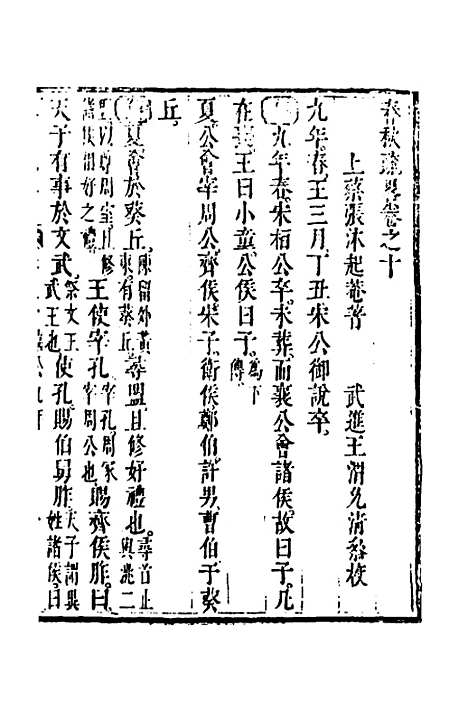 春秋疏畧卷之十
上蔡張沐起菴著 武進王渭允清發校
九年春王三月丁丑宋公御說卒
九年春宋桓公卒未葬而襄公會諸侯故曰子凡
在喪王曰小童公侯曰子為下傳
夏公會宰周公齊侯宋子衛侯鄭伯許男曹伯于葵
丘
夏會於葵丘陳留外黃東有葵丘尋盟且修好禮也尋首止
諸侯相好之禮王使宰孔宰孔周冢宰周公也賜齊侯胙曰
天子有事於文武祭文王武王也使孔賜伯舅胙天子謂異姓諸侯曰